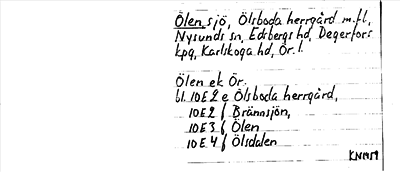 Ölen, sjö, Ölsboda herrgård m.fl,
Nysunds sn, Edsbergs hd, Degerfors
kpg, Karlskoga hd, Ör. l.
Ölen ek Ör.
bl. 10E2e Ölsboda herrgård,
10E2f Brännsjön,
10E3f Ölen
10E4f Ölsdalen